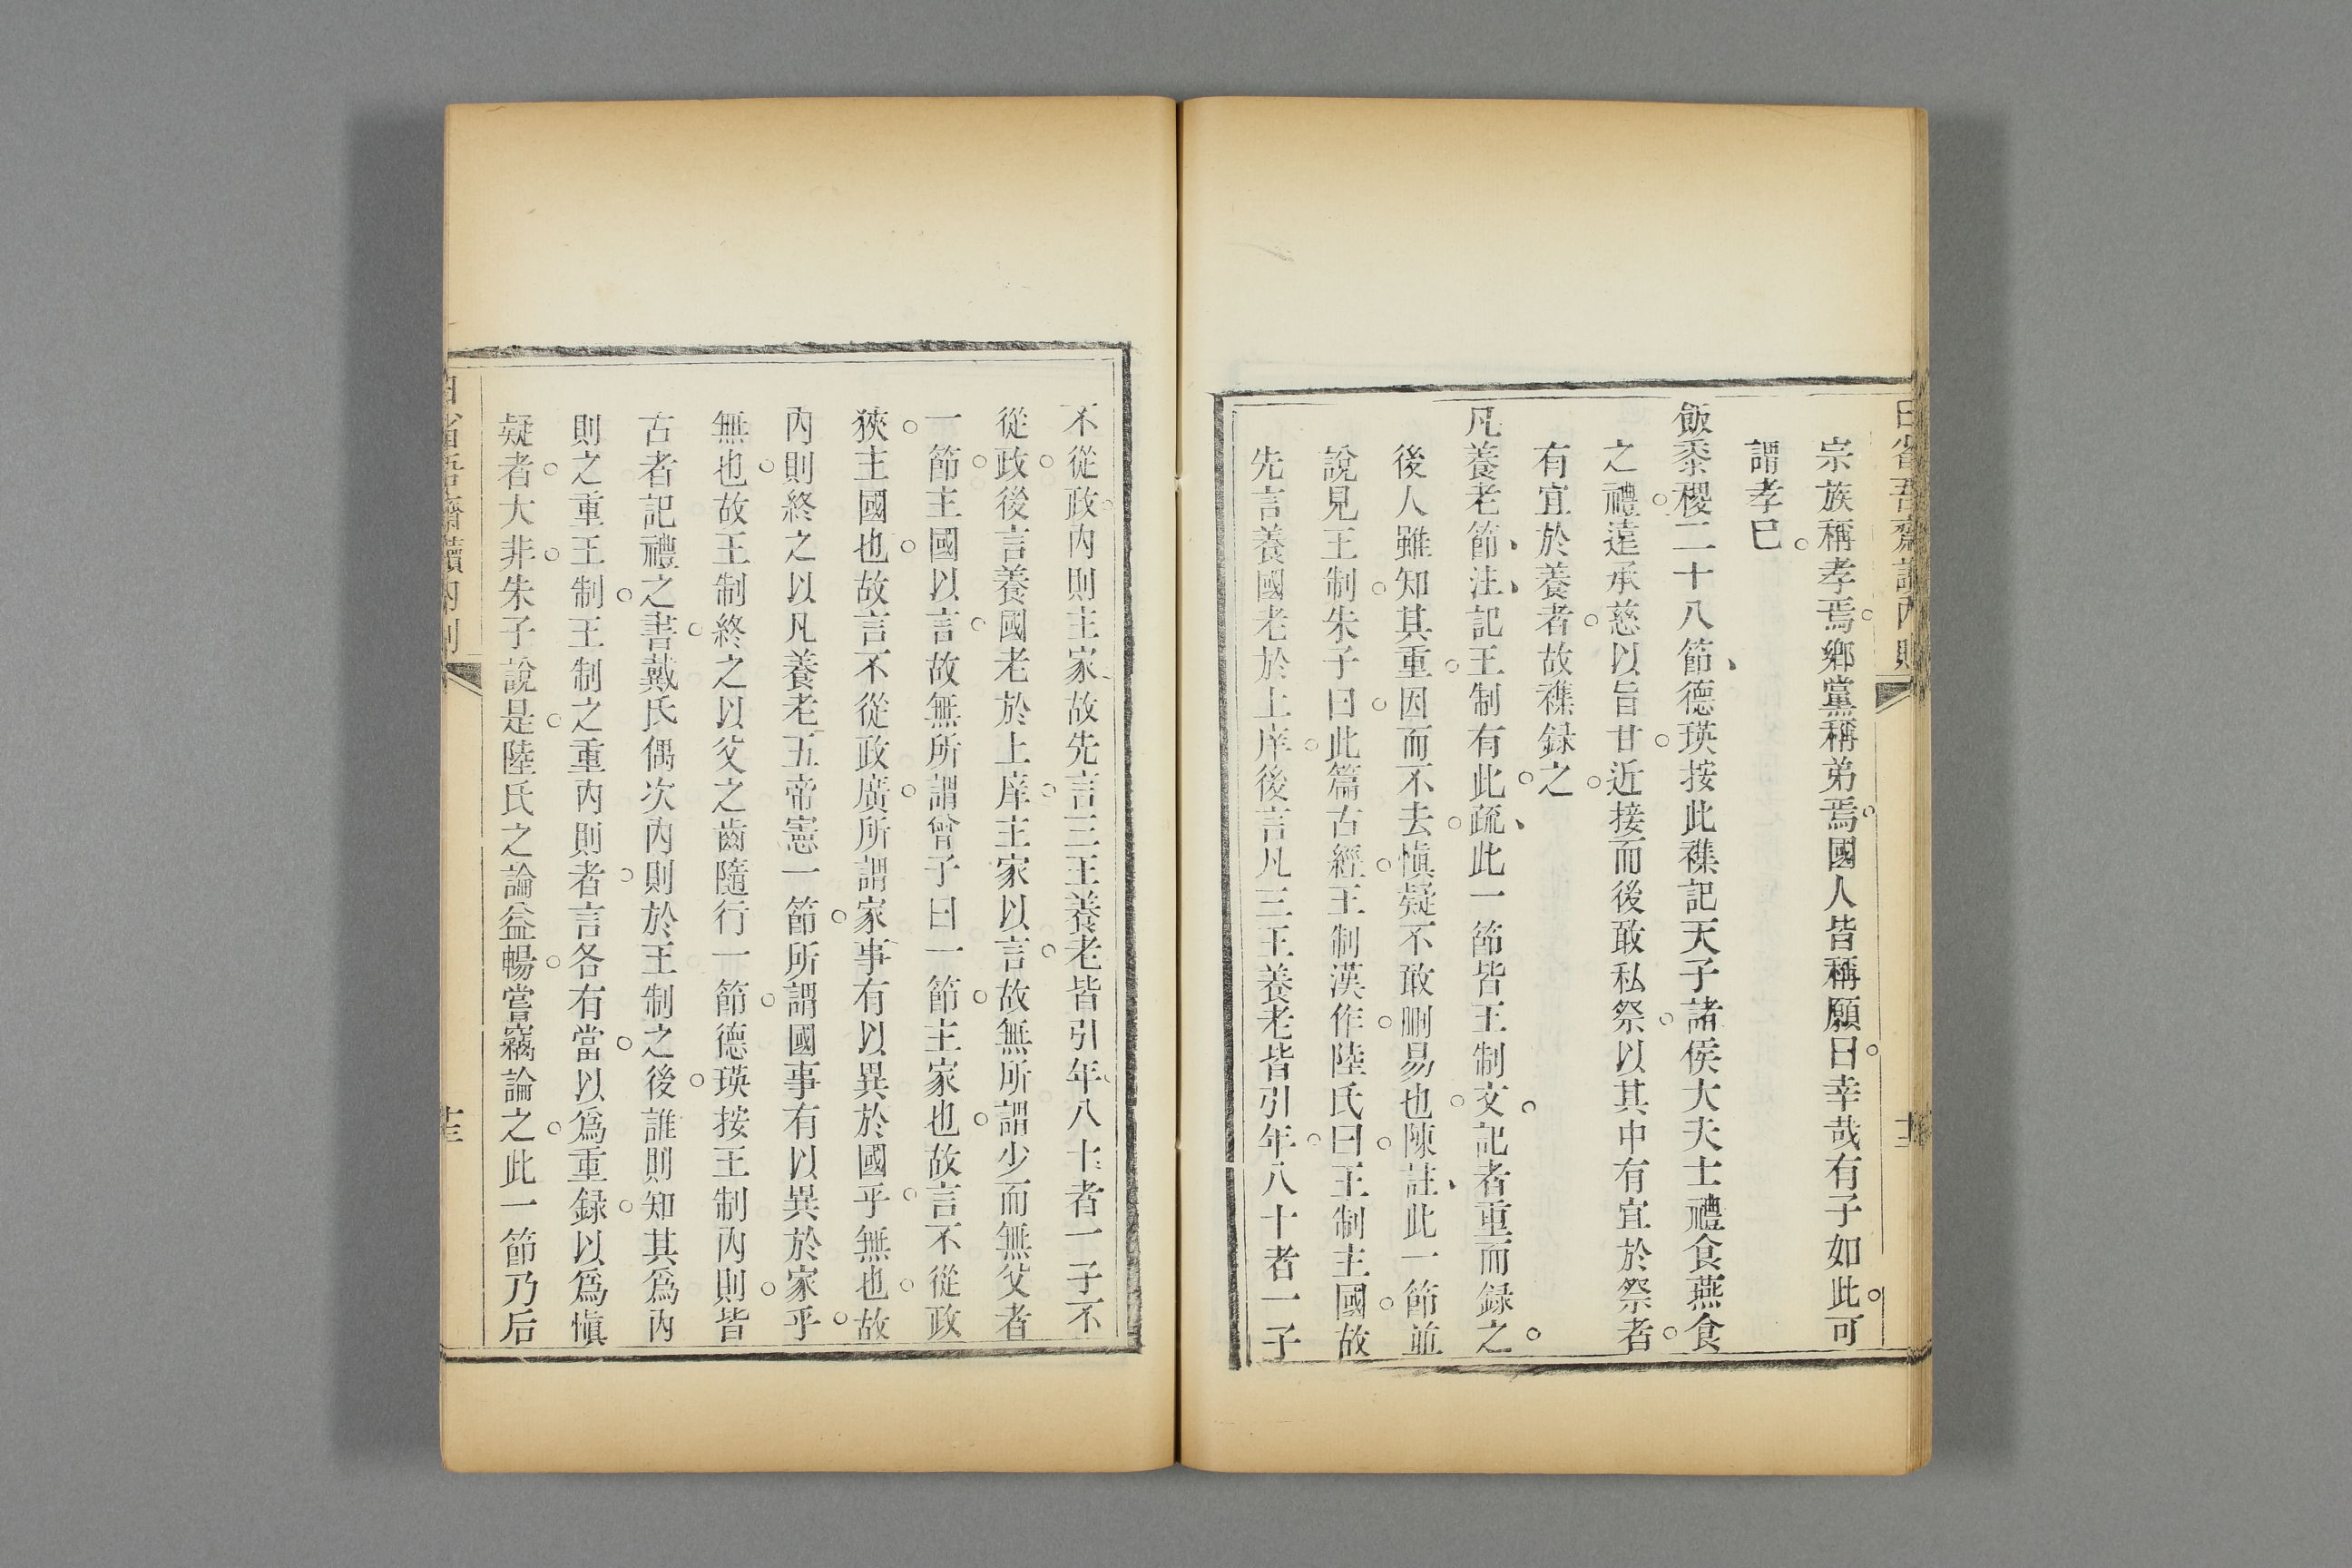 宗族稱孝焉鄉黨稱弟焉國人皆稱願曰幸哉有子如此可
謂孝已
飯黍稷二十八節德瑛按此襍記天子諸侯大夫士禮食燕食
之禮遠承慈以旨甘近接而後敢私祭以其中有宜於祭者
有宜於養者故襍録之
凡養老節注記王制有此疏此一節皆王制文記者重而録之
後人雖知其重因而不去慎疑不敢刪易也陳註此一節並
說見王制朱子曰此篇古經王制漢作陸氏曰王制主國故
先言養國老於上庠後言凡三王養老皆引年八十者一子
不從政內則主家故先言三王養老皆引年八十者一子不
從政後言養國老於上庠主家以言故無所謂少而無父者
一節主國以言故無所謂曾子曰一節主家也故言不從政
狹主國也故言不從政廣所謂家事有以異於國乎無也故
內則終之以凡養老五帝憲一節所謂國事有以異於家乎
無也故王制終之以父之齒隨行一節德瑛按王制內則皆
古者記禮之書戴氏偶次內則於王制之後誰則知其爲內
則之重王制王制之重內則者言各有當以爲重録以爲慎
疑者大非朱子說是陸氏之論益暢嘗竊論之此一節乃后